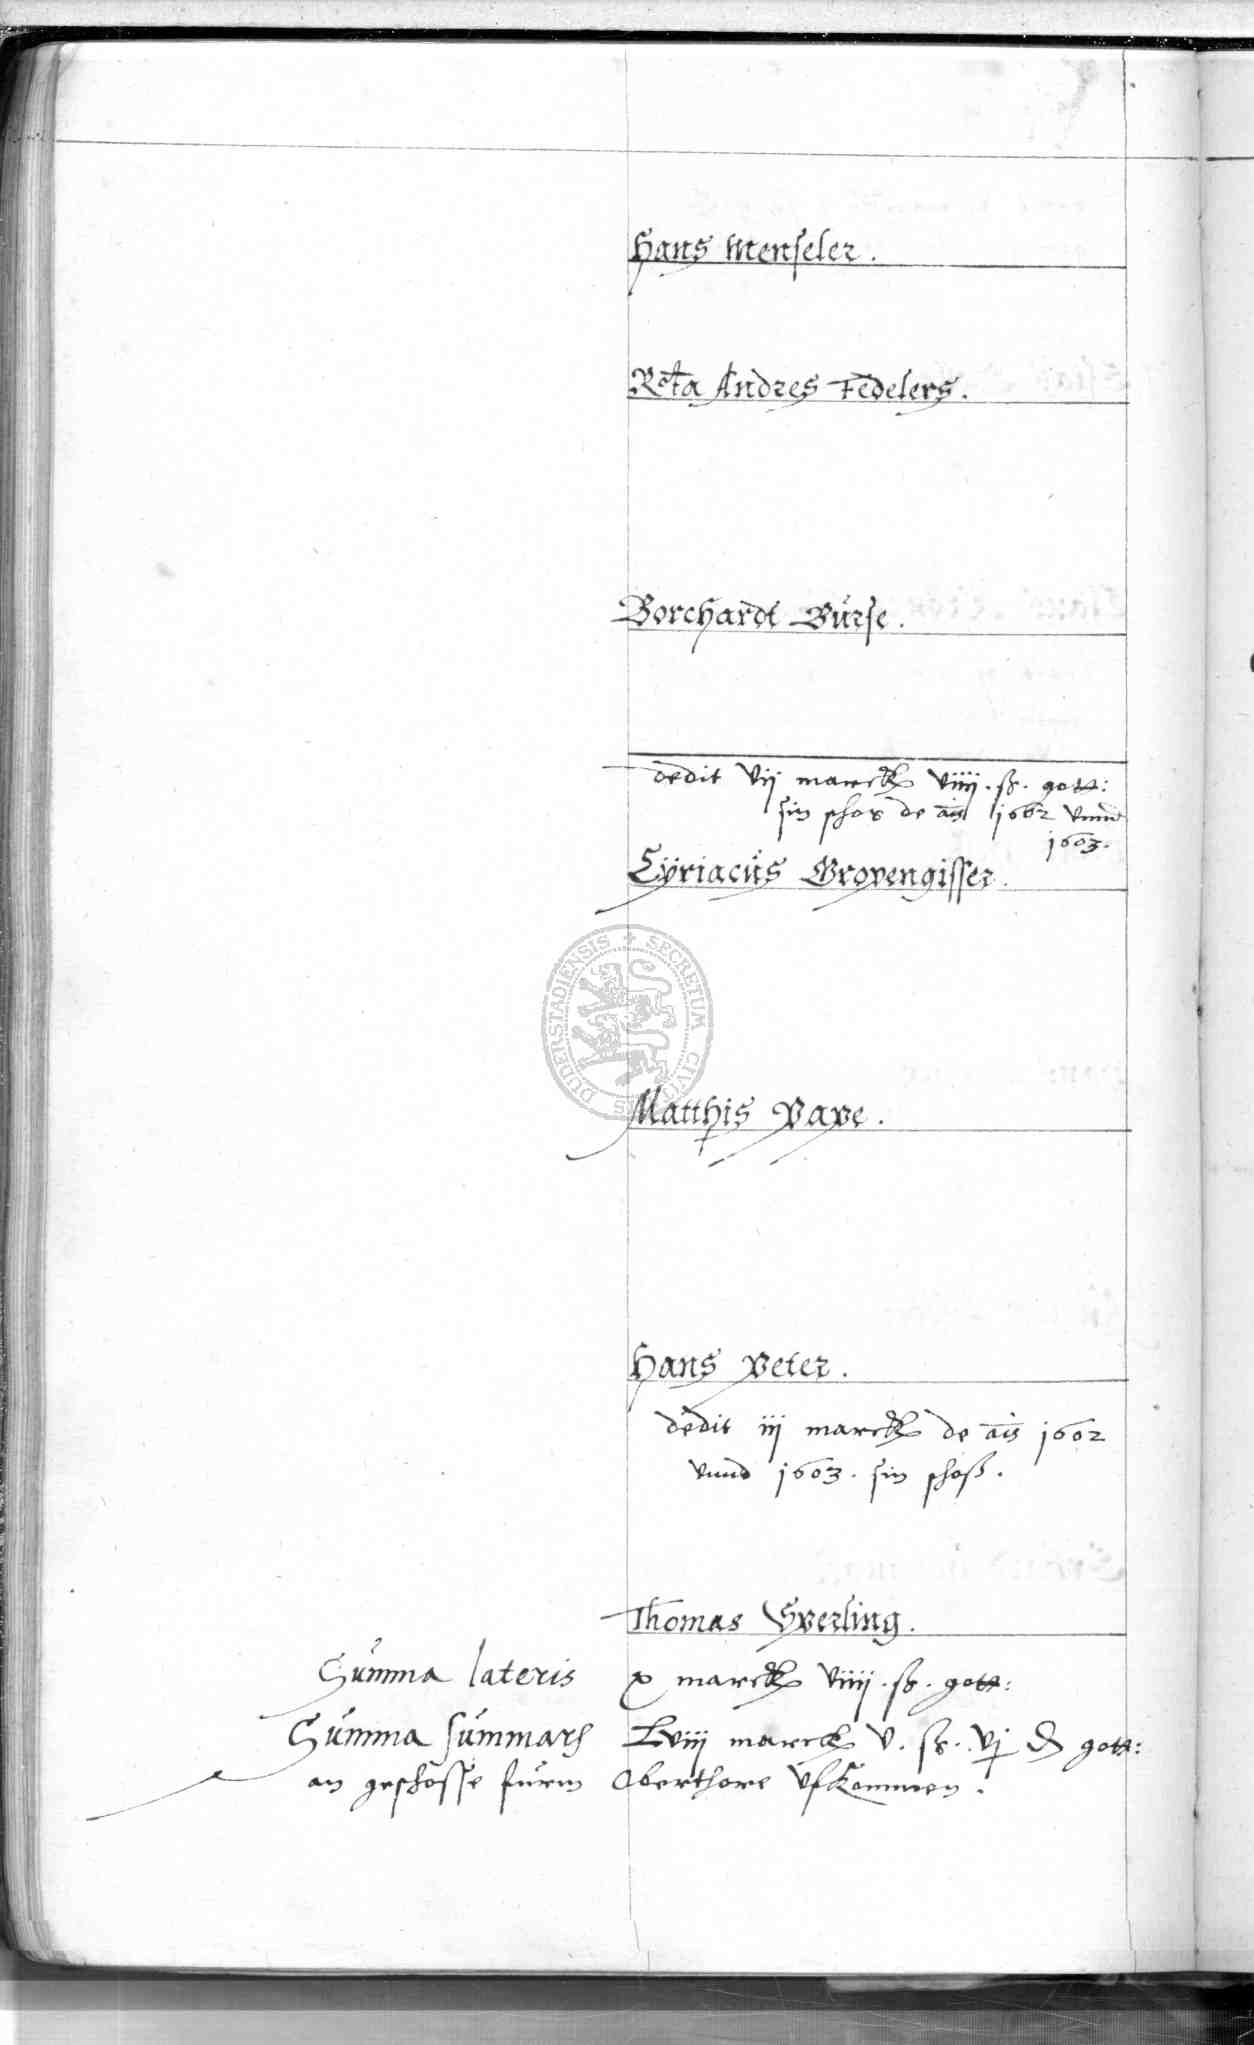 Hans Menseler.
Rcta Andres Fedelers.
Borchardt Bürse.
dedit vij marck viiij. ß. gott:
sin schos de ais 1602 vnnd
1603.
Cÿriacüs Gropengisser.
DUDERSTADIENSIS + SECRETUM CIVITATIS
Matthis Pape.
Hans Peter.
dedit iij marck de ais 1602
vnnd 1603. sin schoß.
Thomas Sperling.
Sümma lateris x marck viiij. ß. gott:
Sümma sümmarum Lviij marck v. ß. vj ₰ gott:
an geschosse fürm Oberthore vfkommen.